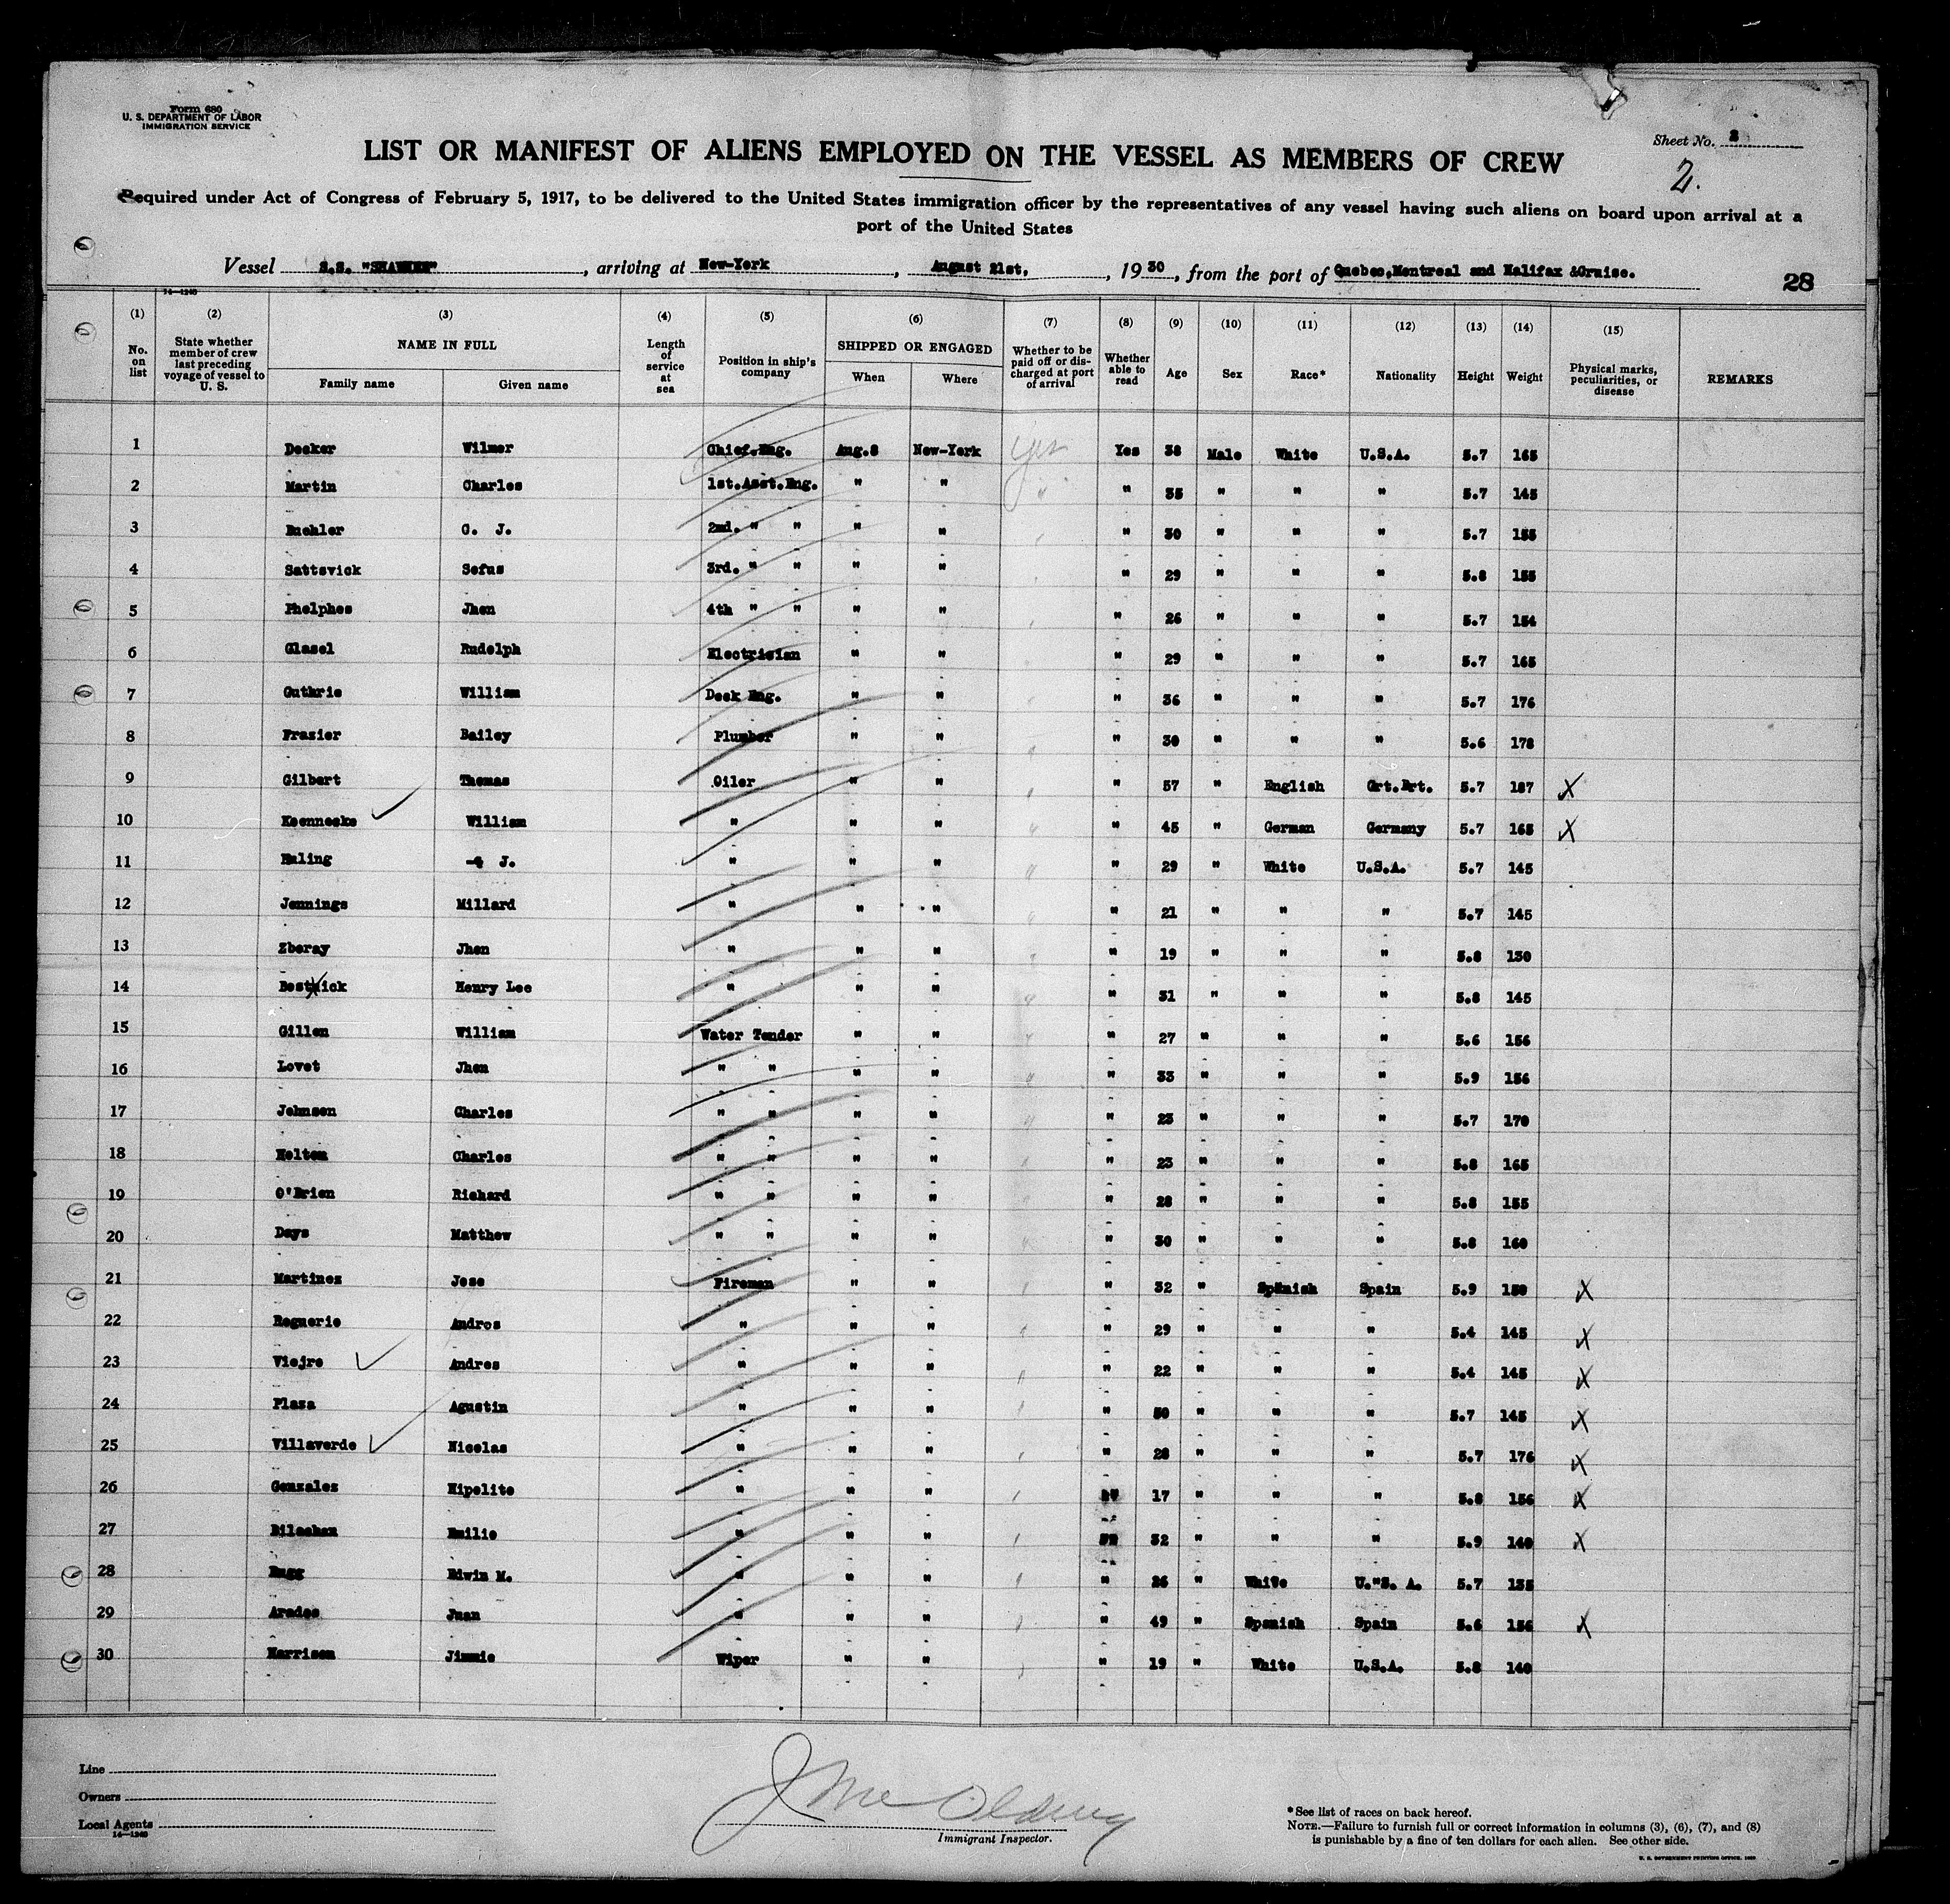 Form 680
U. S. DEPARTMENT OF LABOR
IMMIGRATION SERVICE
Sheet No. 2
2.
LIST OR MANIFEST OF ALIENS EMPLOYED ON THE VESSEL AS MEMBERS OF CREW
Required under Act of Congress of February 5, 1917, to be delivered to the United States immigration officer by the representatives of any vessel having such aliens on board upon arrival at a
port of the United States
Vessel S.S. "SHAWNEE", arriving at New-York, August 21st, 1930, from the port of Quebec,Montreal and Halifax &Cruise.
28
14—1240
(1) No. on list (2) State whether member of crew last preceding voyage of vessel to U. S. (3) NAME IN FULL Family name Given name (4) Length of service at sea (5) Position in ship's company (6) SHIPPED OR ENGAGED When Where (7) Whether to be paid off or discharged at port of arrival (8) Whether able to read (9) Age (10) Sex (11) Race* (12) Nationality (13) Height (14) Weight (15) Physical marks, peculiarities, or disease REMARKS
1 Decker Wilmer Chief.Eng. Aug.8 New-York yes Yes 38 Male White U.S.A. 5.7 165
2 Martin Charles 1st.Asst.Eng. " " " " 35 " " " 5.7 145
3 Buehler C. J. 2nd. " " " " " 30 " " " 5.7 155
4 Sattsvick Sefus 3rd. " " " " " 29 " " " 5.8 155
5 Phelphes Jhon 4th " " " " " 26 " " " 5.7 154
6 Glasel Rudolph Electrician " " " 29 " " " 5.7 165
7 Guthrie William Deck Eng. " " " 36 " " " 5.7 176
8 Frazier Bailey Plumber " " " 30 " " " 5.6 178
9 Gilbert Thomas Oiler " " " " 57 " English Grt.Brt. 5.7 187 X
10 Koennecke William " " " " " 45 " German Germany 5.7 165 X
11 Ealing J. " " " " " 29 " White U.S.A. 5.7 145
12 Jennings Millard " " " " " 21 " " " 5.7 145
13 Zberay Jhon " " " " " 19 " " " 5.8 130
14 Bostwick Henry Lee " " " " " 31 " " " 5.8 145
15 Gillen William Water Tender " " " " 27 " " " 5.6 156
16 Lovet Jhon " " " " " " 33 " " " 5.9 156
17 Johnson Charles " " " " " " 23 " " " 5.7 170
18 Holtom Charles " " " " " 23 " " " 5.8 165
19 O'Brien Richard " " " " " 28 " " " 5.8 155
20 Days Matthew " " " " " 30 " " " 5.8 160
21 Martinez Jose Fireman " " " 32 " Spanish Spain 5.9 150 X
22 Reguerie Andros " " " " " 29 " " " 5.4 145 X
23 Viejre Andres " " " " " 22 " " " 5.4 145 X
24 Plaza Agustin " " " " 50 " " " 5.7 145 X
25 Villaverde Nicolas " " " " 28 " " " 5.7 176 X
26 Gonzales Hipolito " " " 17 " " " 5.8 156 X
27 Emilio " " " 32 " " " 5.9 140 X
28 Rugg Edwin M. " " " " 26 " White U."S. A. 5.7 135
29 Arados Juan " " " " 49 " Spanish Spain 5.6 156 X
30 Harrison Jimmie Wiper " " " 19 " White U.S.A. 5.8 140
Line
Owners
Local Agents
14—1240
Immigrant Inspector.
*See list of races on back hereof.
NOTE.—Failure to furnish full or correct information in columns (3), (6), (7), and (8)
is punishable by a fine of ten dollars for each alien. See other side.
U. S. GOVERNMENT PRINTING OFFICE